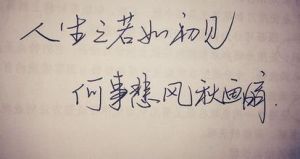 人生之若如初见
何事悲风秋画扇.